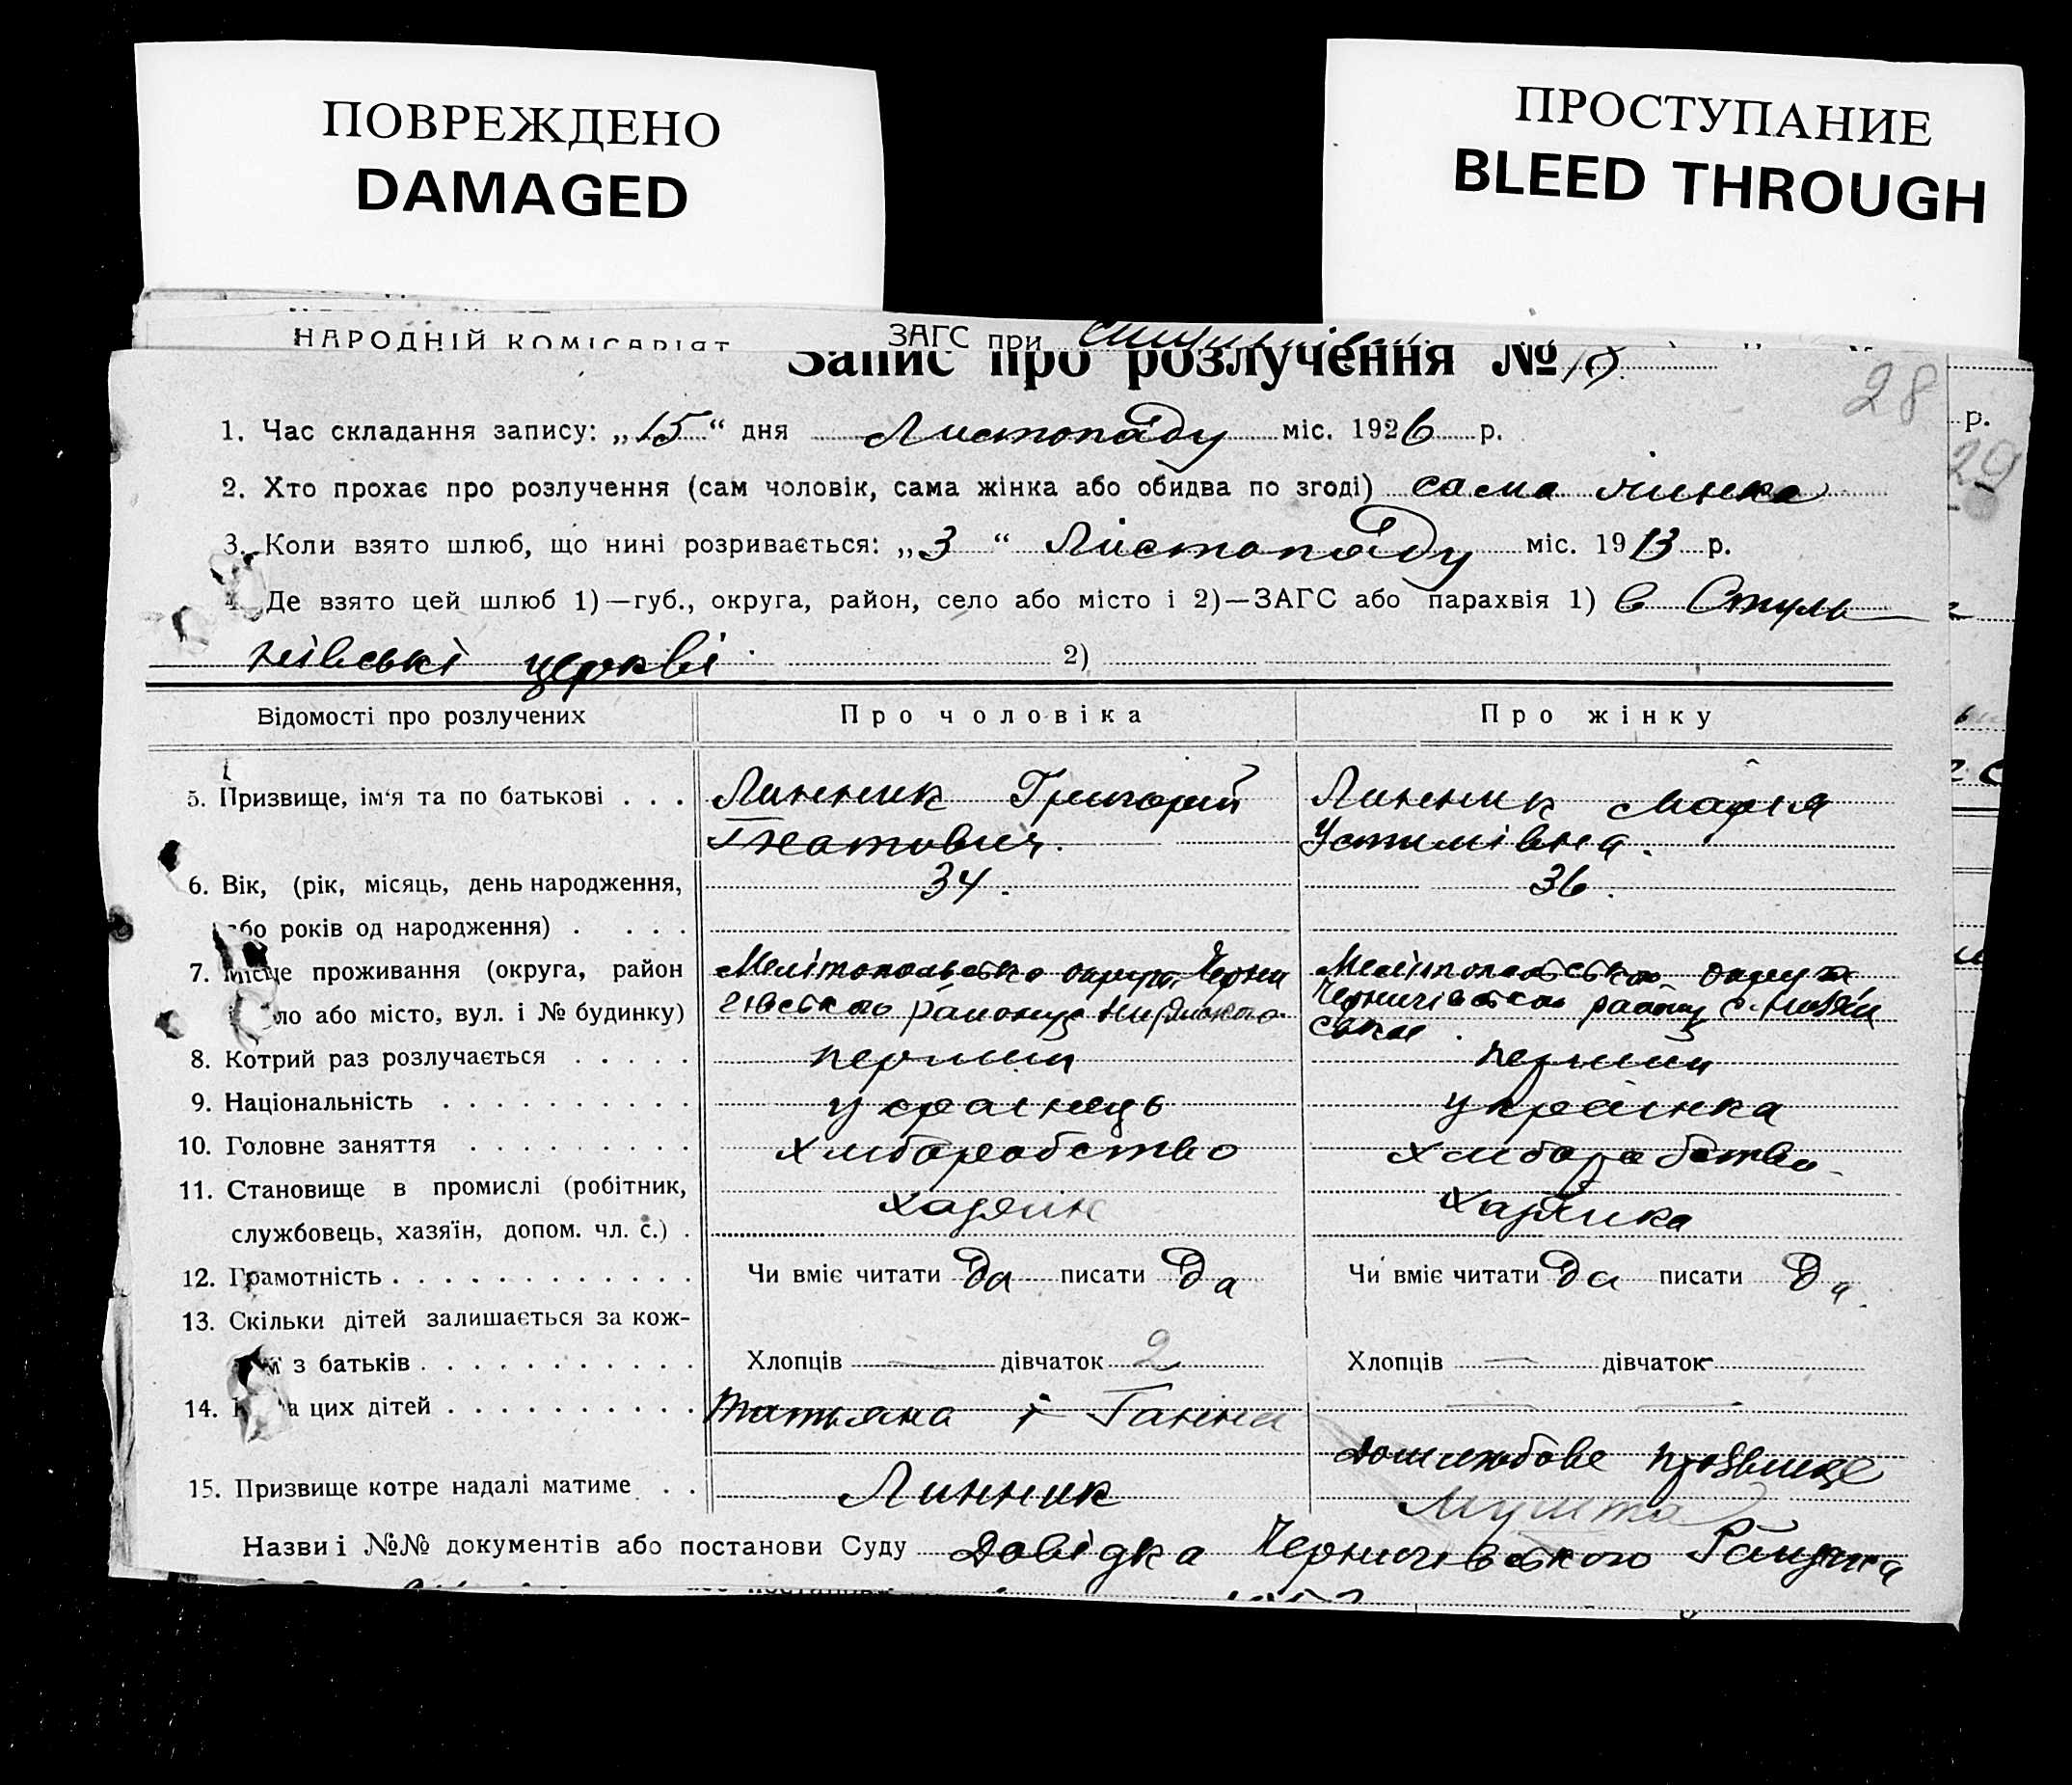 ПОВРЕЖДЕНО
DAMAGED
ПРОСТУПАНИЕ
BLEED THROUGH
НАРОДНІЙ КОМІСАРІЯТ
ЗАГС при
Запис про розлучення №
28
1. Час складання запису: „15“ дня Листопаду міс. 1926 р.
р.
29
2. Хто прохає про розлучення (сам чоловік, сама жінка або обидва по згоді) сама жинка
3. Коли взято шлюб, що нині розривається: „3“ Листопаду міс. 1913 р.
4. Де взято цей шлюб 1)—губ., округа, район, село або місто і 2)—ЗАГС або парахвія 1) в Стуль
нівські церкві 2)
Відомості про розлучених Про чоловіка Про жінку
5. Призвище, ім'я та по батькові . . . Линник Григорий Линник Мария
Гнатович. Устимівна.
6. Вік, (рік, місяць, день народження, 34. 36.
або років од народження) . . . .
7. Місце проживання (округа, район Мелітопольсько округи, Черни Мелітопольською округи
ло або місто, вул. і № будинку) гівського району Чернигівською району с.
8. Котрий раз розлучається . . . . . перший перший
9. Національність . . . . . . . . . . українець українка
10. Головне заняття . . . . . . . . . хлиборобство хлиборобство
11. Становище в промислі (робітник,
службовець, хазяїн, допом. чл. с.) . хазяин хазяйка
12. Грамотність . . . . . . . . . . . . Чи вміє читати да писати да Чи вміє читати да писати да
13. Скільки дітей залишається за кож-
з батьків . . . . . . . . . . . Хлопців — дівчаток 2 Хлопців — дівчаток
14. цих дітей . . . . . . . . . . Татьяна і Ганна — —
дошлюбове прозвище
15. Призвище котре надалі матиме . . Линник Мушта
Назви і №№ документів або постанови Суду Довідка Чернигівського